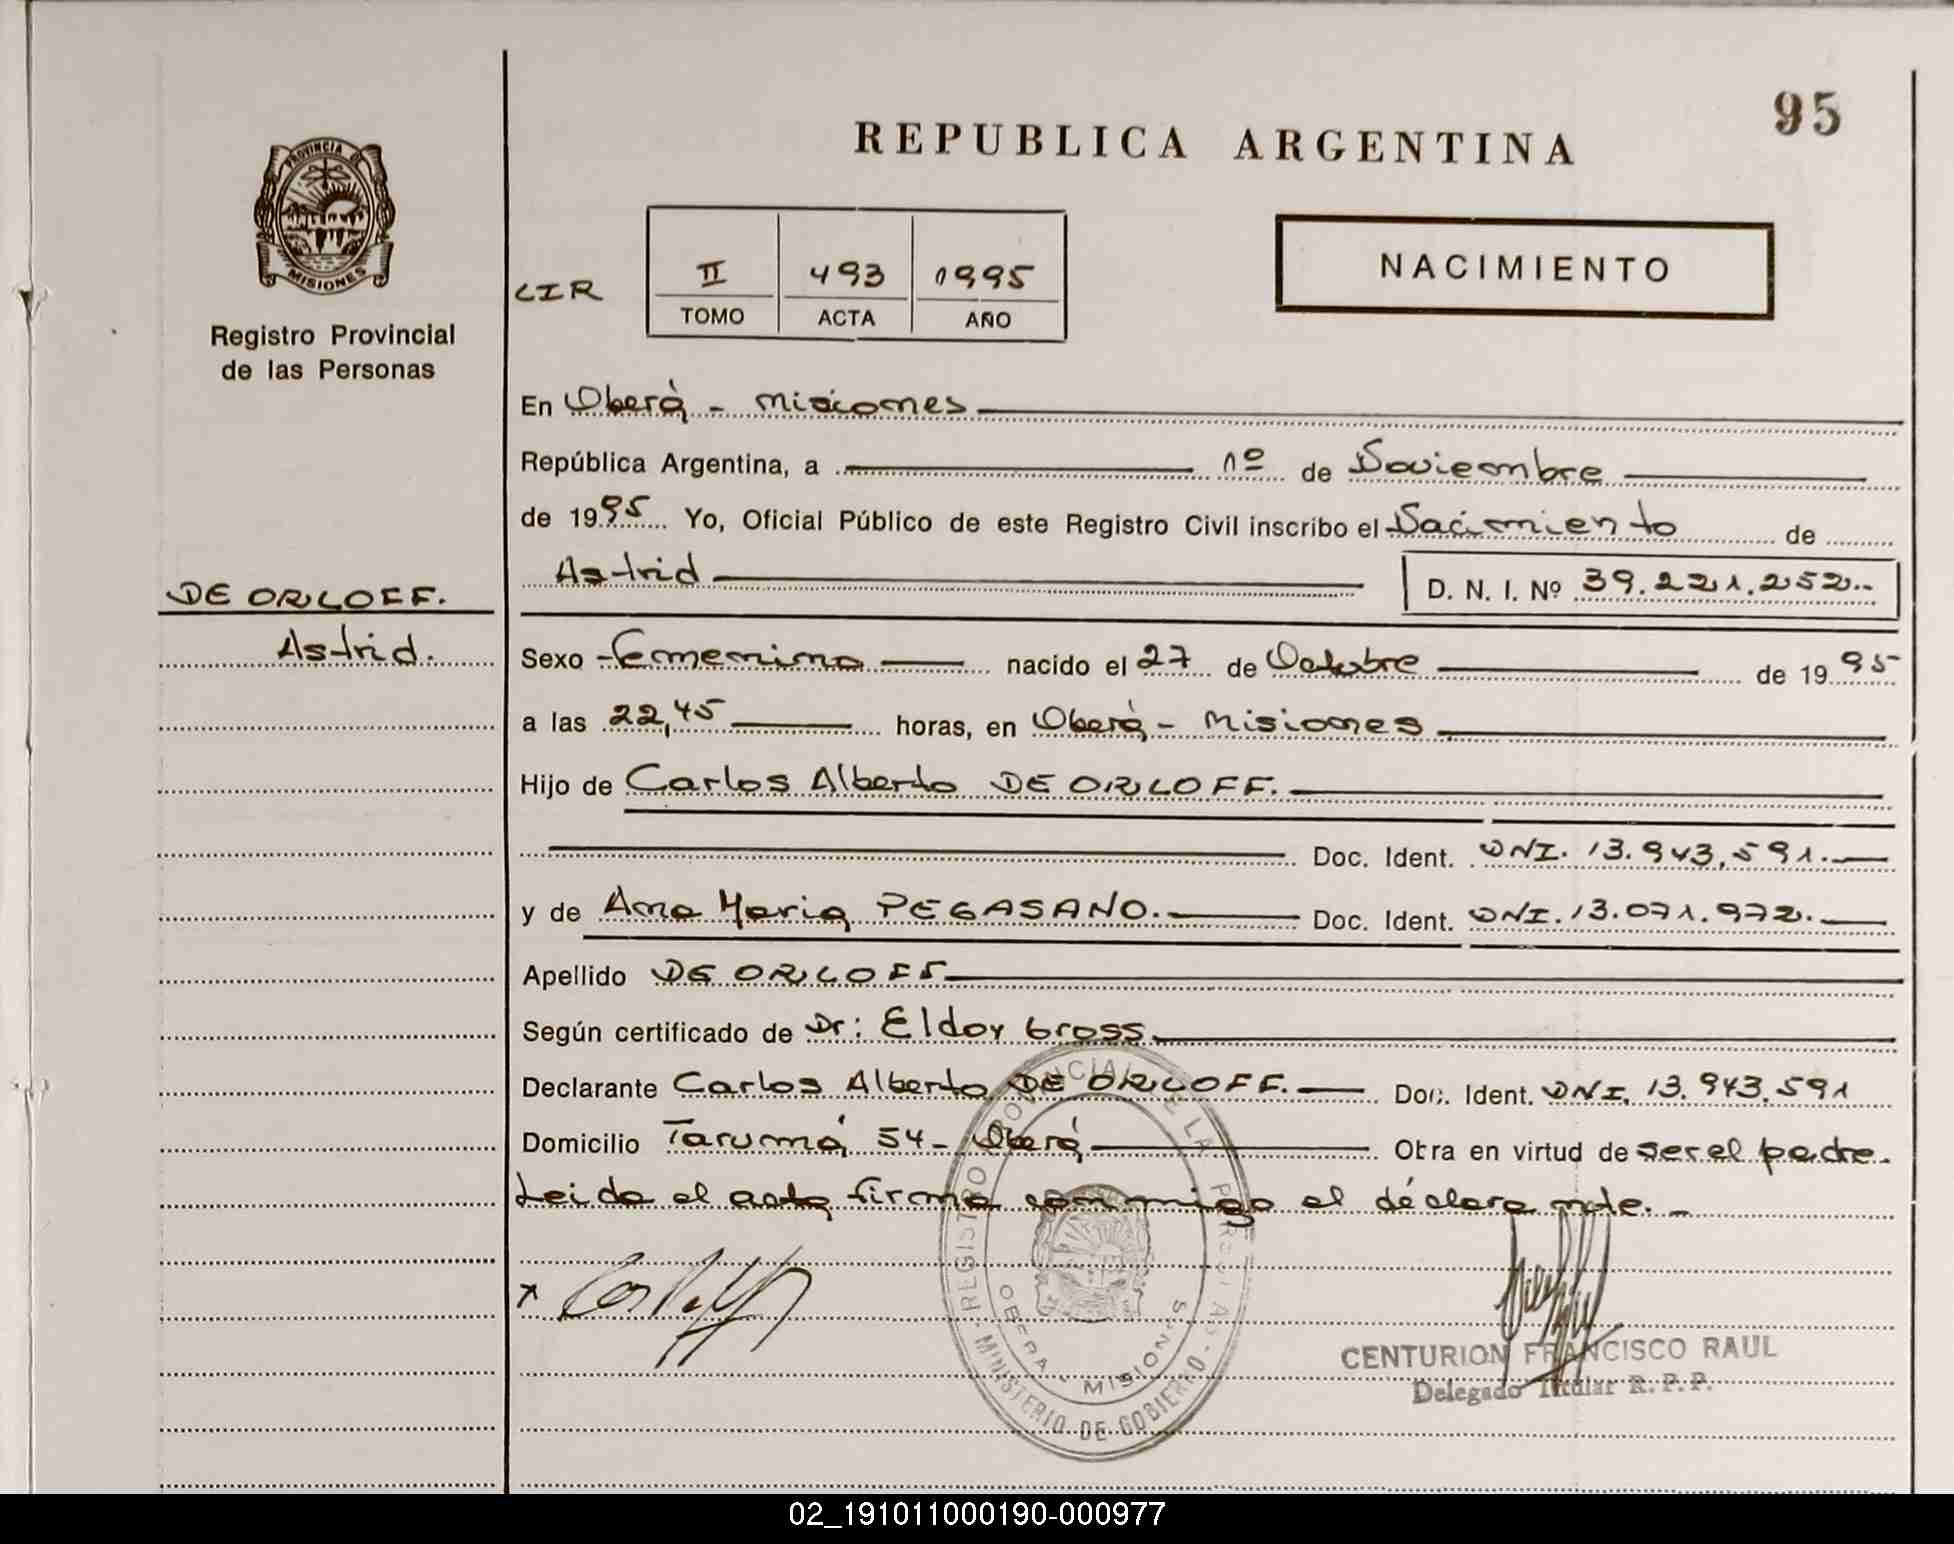 95
REPUBLICA ARGENTINA
PROVINCIA DE
MISIONES
Registro Provincial
de las Personas
CIR
II 493 1995
TOMO ACTA AÑO
NACIMIENTO
En Oberá - Misiones
República Argentina, a 1º de Noviembre
de 1995 Yo, Oficial Público de este Registro Civil inscribo el Nacimiento de
Astrid D. N. I. Nº 39.221.252
DE ORLOFF.
Astrid.
Sexo Femenino nacido el 27 de Octubre de 1995
a las 22,45 horas, en Oberá - Misiones
Hijo de Carlos Alberto DE ORLOFF.
Doc. Ident. DNI. 13.943.591.
y de Ana Maria PEGASANO. Doc. Ident. DNI. 13.071.972.
Apellido DE ORLOFF
Según certificado de Dr: Eldor Gross
Declarante Carlos Alberto DE ORLOFF. Doc. Ident. DNI. 13.943.591
Domicilio Tarumá 54 - Oberá Obra en virtud de ser el padre.
Leida el acta firma conmigo el declarante. -
REGISTRO PROVINCIAL DE LAS PERSONAS
OBERA - MISIONES
MINISTERIO DE GOBIERNO
CENTURION FRANCISCO RAUL
Delegado Titular R. P. P.
02_191011000190-000977